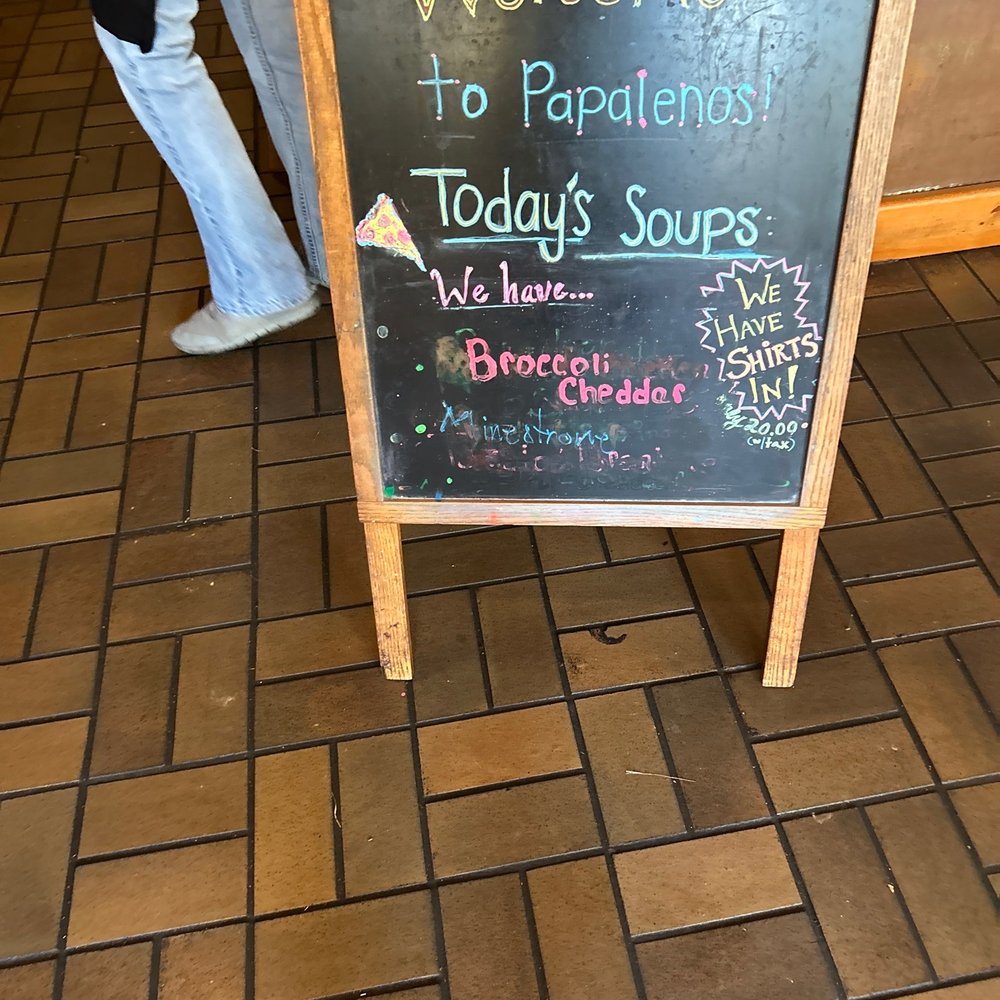 Welcome
to Papalenos!
Today's Soups:
We have...
Broccoli
Cheddar
Minestrone
WE
HAVE
SHIRTS
IN!
20.09
(w/tax)